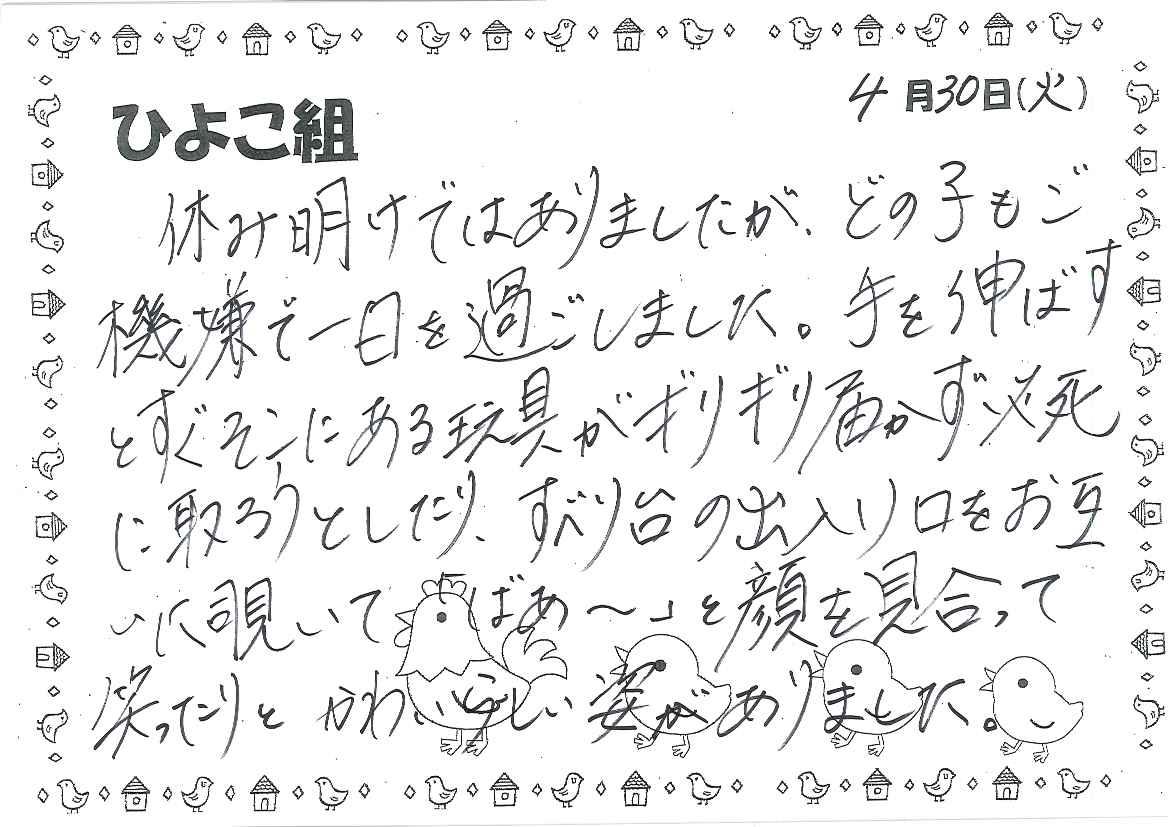 4月30日(火)
ひよこ組
休み明けではありましたが、どの子もご
機嫌で一日を過ごしました。手を伸ばす
とすぐそこにある玩具がギリギリ届かず必死
に取ろうとしたり、すべり台の出入り口をお互
いに覗いて「ばあ～」と顔を見合って
笑ったりと かわいらしい姿がありました。